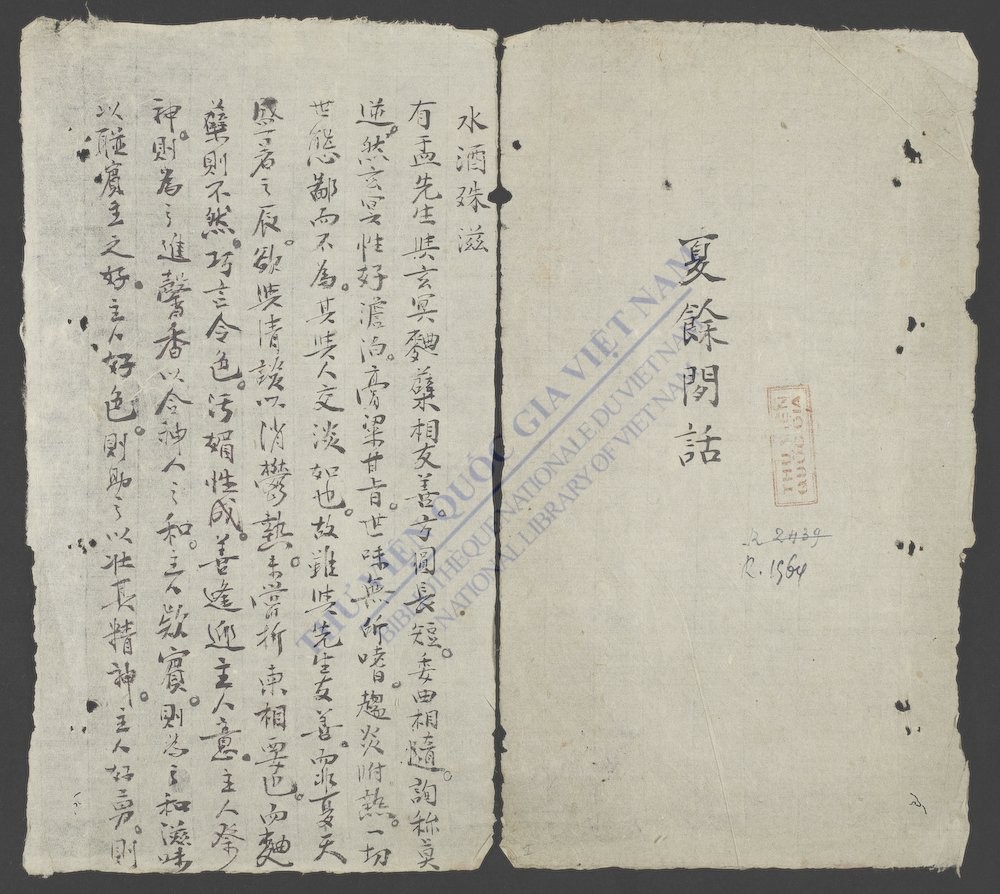 夏餘閒話
THƯ VIỆN
QUỐC GIA
R 2439
R. 1964
水酒殊滋
有盂先生與玄冥麯蘖相友善。方圓長短。委曲相隨。詢称莫
逆。然玄冥性好澹泊。膏粱甘旨。世味無所嗜。趨炎附熱。一切
世態鄙而不為。其與人交淡如也。故雖與先生友善。而非夏天
盛暑之辰。欲與清談以消鬱熱。未嘗折柬相要也。而麯
蘖則不然。巧言令色。污媚性成。善逢迎主人意。主人祭
神。則為之進馨香以合神人之和。主人欵賓。則為之和滋味
以聯賓主之好。主人好色。則助之以壯其精神。主人好勇。則
THƯ VIỆN QUỐC GIA VIỆT NAM
BIBLIOTHÈQUE NATIONALE DU VIETNAM
NATIONAL LIBRARY OF VIETNAM